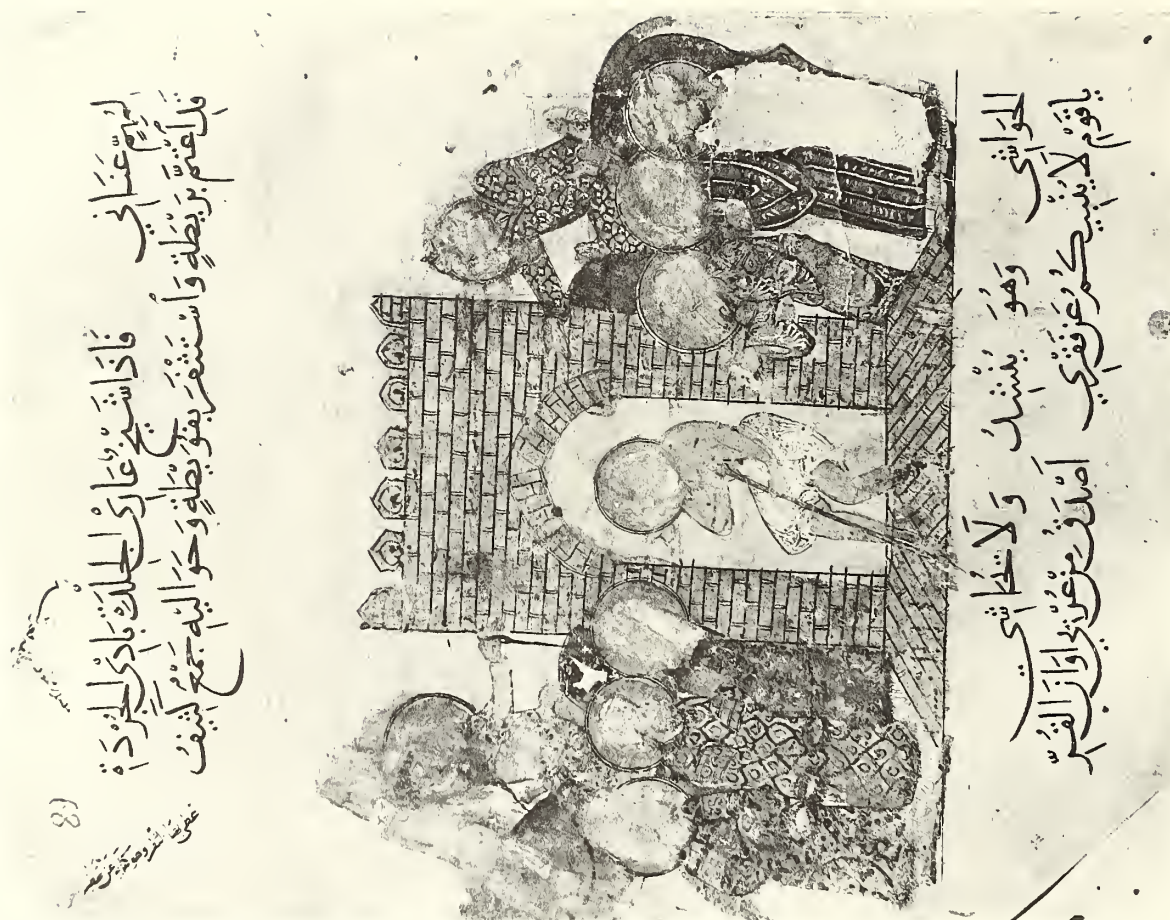 لِمُهِمٍّ عَنَانِي فَاِذَا شَيْخٌ عَارِي الجِلْدَةِ بَادِي الجُرْدَةِ
قَدِ اعْتَمَّ بِرَيْطَةٍ وَاسْتَثْفَرَ بِفُوَيْطَةٍ وَحَوَالَيْهِ جَمْعٌ كَثِيفُ
الحَوَاشِي وَهُوَ يُنْشِدُ وَلَا يُحَاشِي
يَا قَوْمِ لَا يُنْبِيكُمُ عَنْ فَقْرِي اَصْدَقُ مِنْ عُرْيِي اَوَانَ القُرِّ